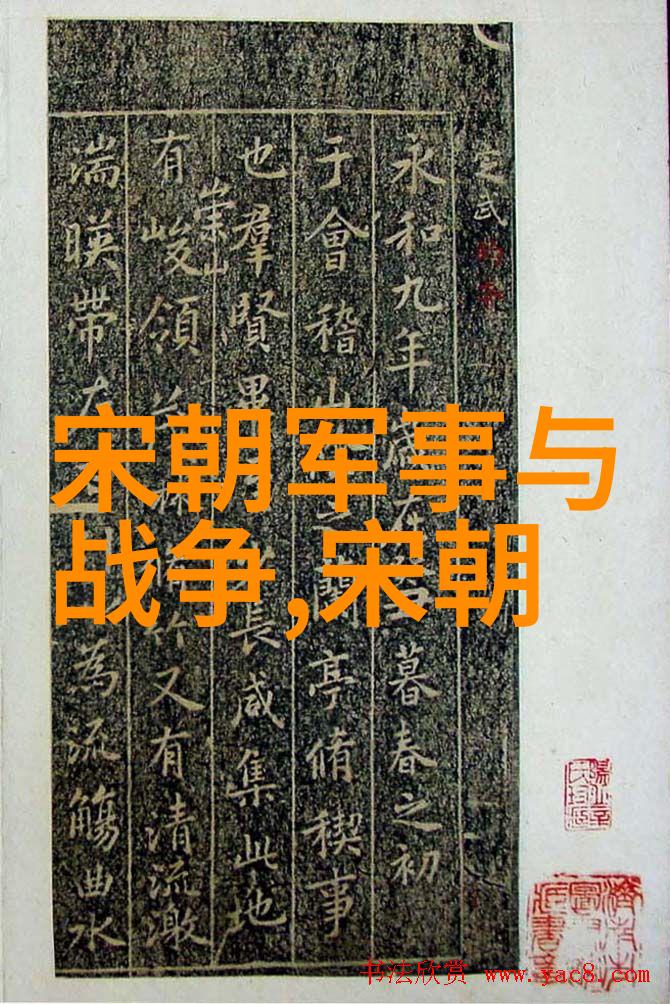 定武
永和九年歲在暮春之初
于會稽山之蘭亭脩稧事
也羣賢畢長咸集此地
有崇山峻領茂林脩竹又有清流激
湍暎帶左為流觴曲水
宋朝军事与
战争,宋朝
书法欣赏 www.yac8.com